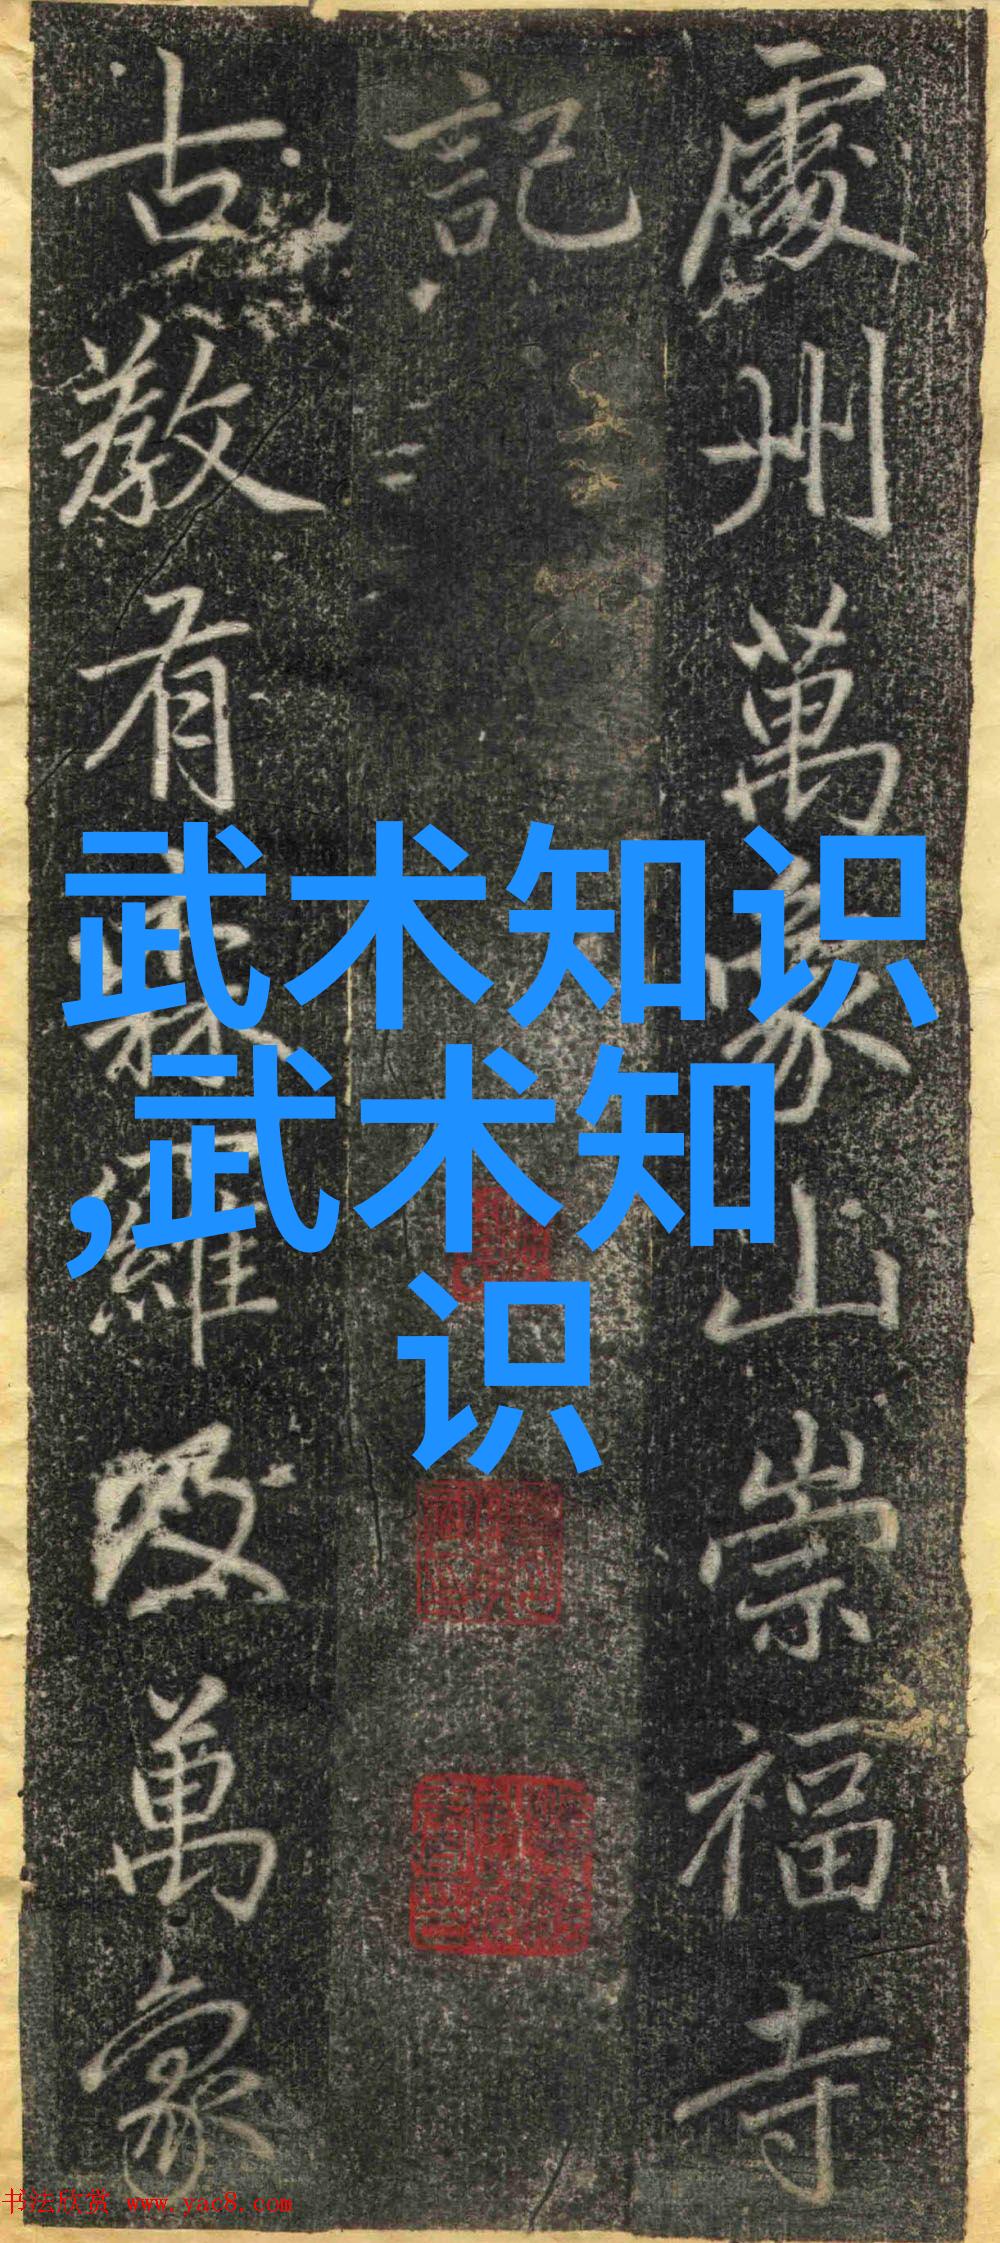 處州萬象山崇福寺
記
古教有森羅及萬象
武术知识
,武术知
识
书法欣赏 www.yac8.com